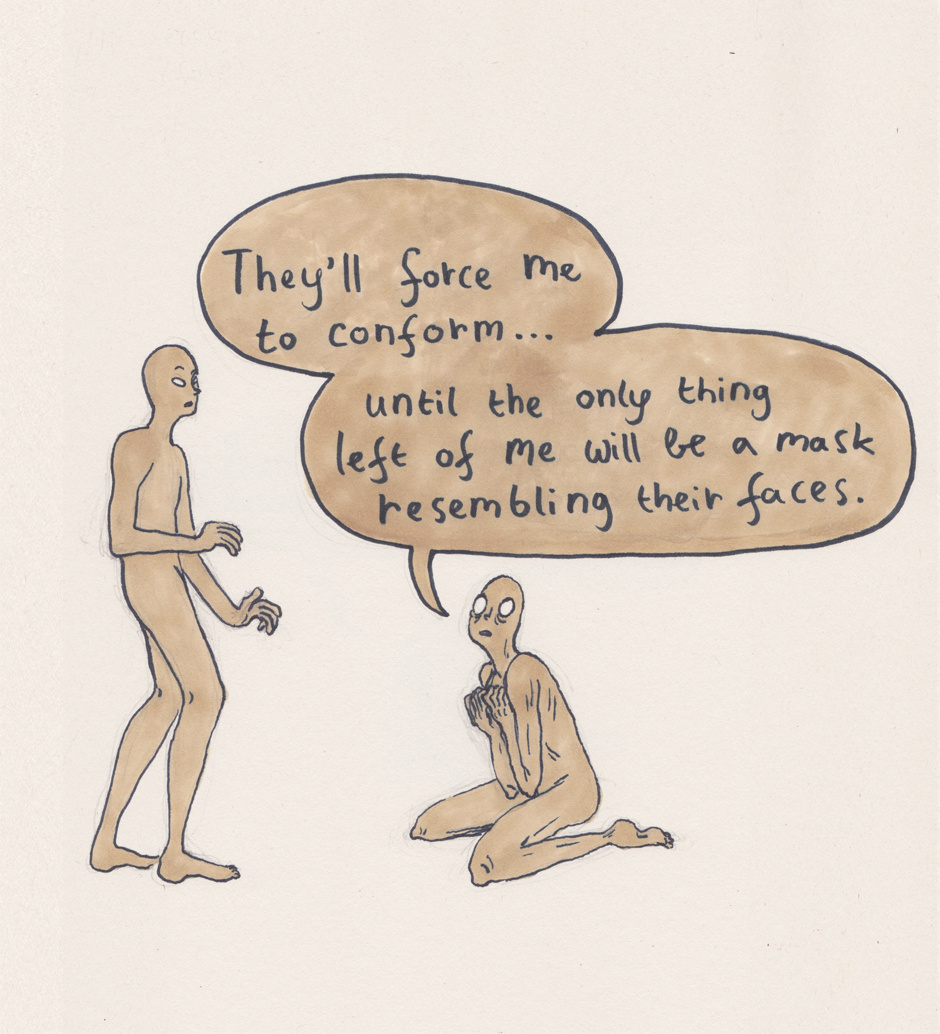 They'll force me
to conform...
until the only thing
left of me will be a mask
resembling their faces.